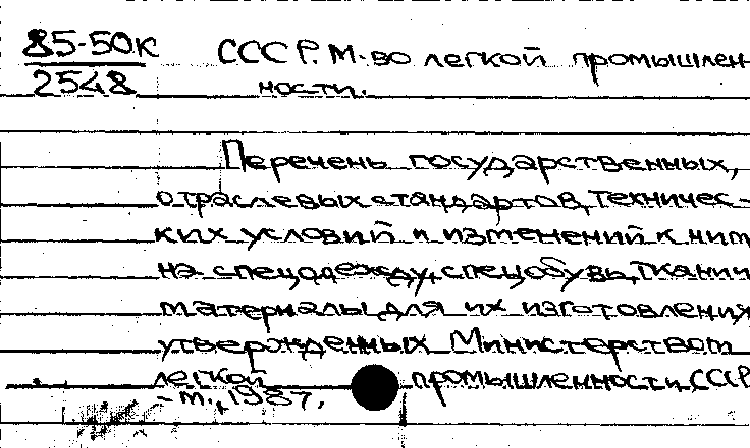 85-50к
2548
СССР. М-во легкой промышлен
ности.
Перечень государственных,
отраслевых стандартов, техничес-
ких условий и изменений к ним
на спецодежду, спецобувь, ткани и
материалы для их изготовления
утвержденных Министерством
легкой промышленности СССР
- м., 1987.